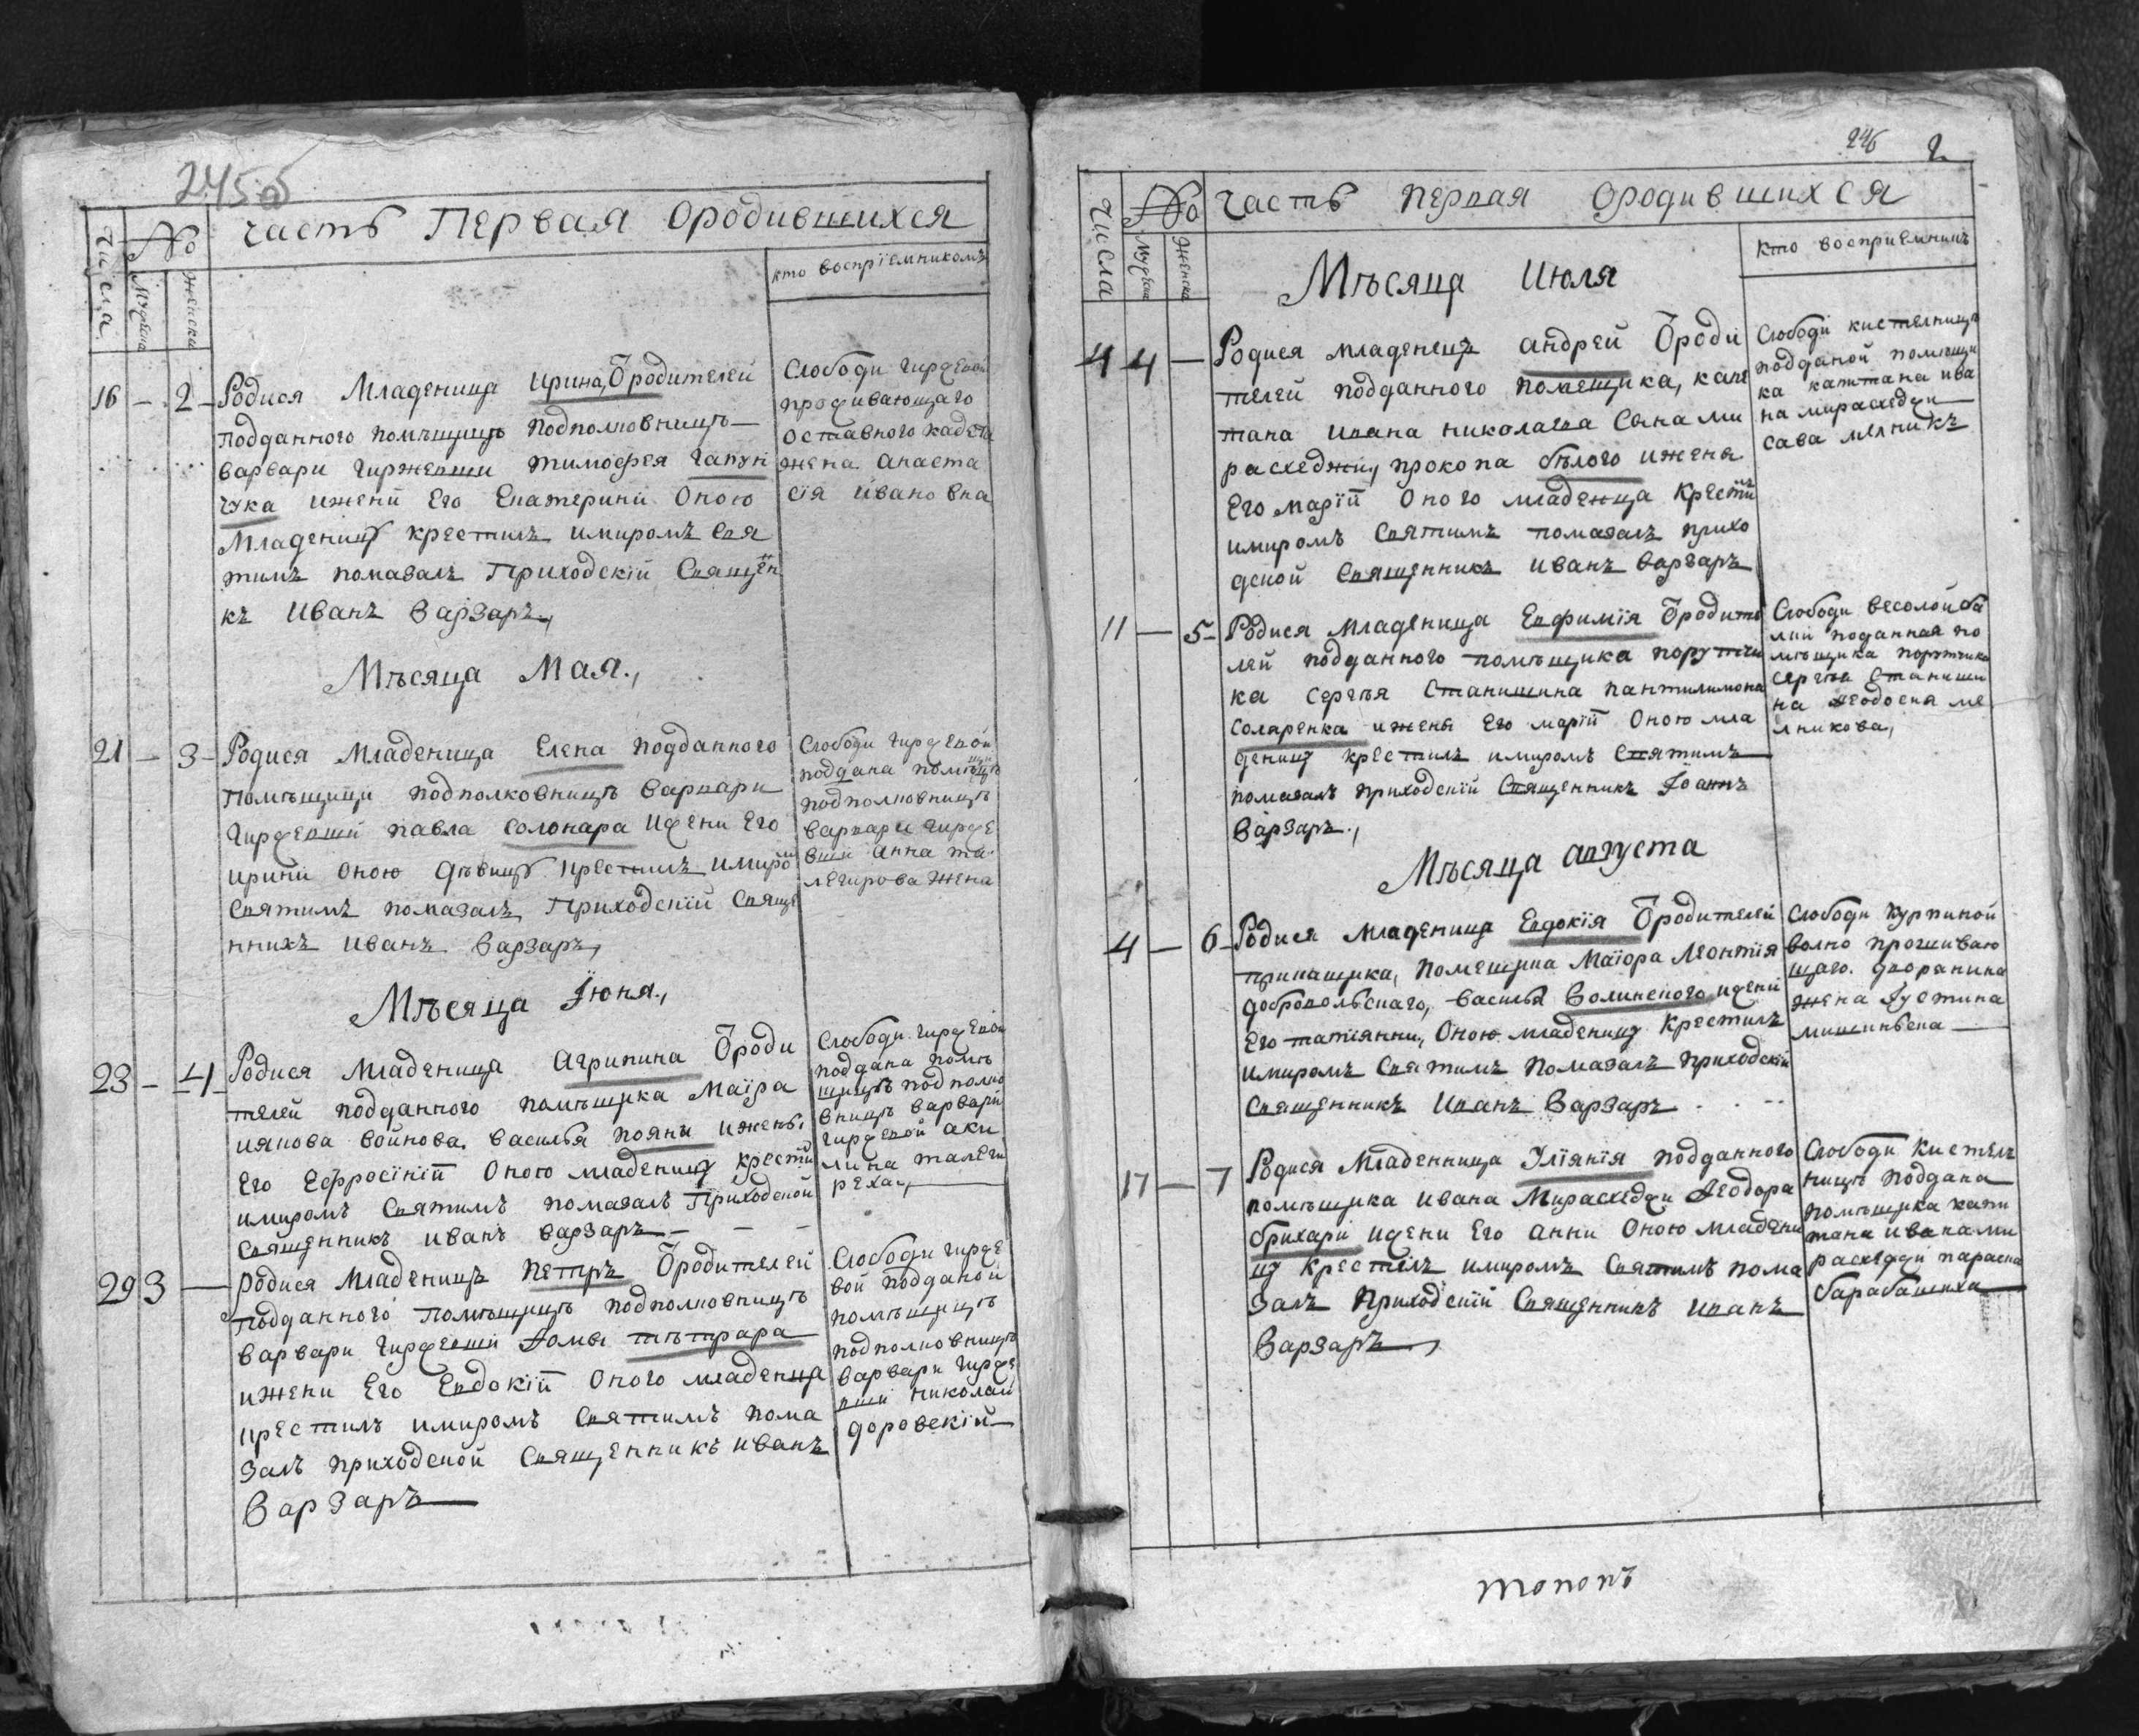 245об
Числа
№
Мужеска
Женска
Часть Первая Ородившихся
кто восприемникомъ
16 – 2 – Родися Младеница Ирина, Ородителей
Подданного помѣщицѣ Подполковницѣ
Варвари Гиржевши Тимофея Гапун
чука ижени Его Екатерини Оною
Младеницу крестилъ имиромъ Свя
тимъ помазалъ Приходскій Священ
къ Иванъ Варзаръ,
Слободи Гиржевой
проживающаго
оставного кадета
жена Анаста
сія Ивановна
Мѣсяца Мая.,
21 – 3 – Родися Младеница Елена подданного
Помѣщици подполковницѣ Варвари
Гиржевши Павла Солонара ижени Его
Ирини Оною дѣвицу крестилъ имиро
Святимъ помазалъ Приходскій Свяще
нникъ Иванъ Варзаръ,
Слободи Гиржевой
поддана помѣщицѣ
подполковницѣ
Варвари Гирже
вши Анна та
легирова жена
Мѣсяца Іюня.,
23 – 4 – Родися Младеница Агрипина Ороди
телей подданного помѣщика Маіра
Иякова Войнова. Василья Пояни ижены
Его Ефросініи Оною младеницу крести
имиромъ Святимъ помазалъ Приходской
Священникъ Иванъ Варзаръ – – –
Слободи Гиржевой
поддана помѣ
щицѣ подполко
вницѣ Варвари
Гиржевой аки
лина талеги
реха,
29 3 — Родися Младеницъ Петръ Ородителей
подданного помѣщицѣ подполковницѣ
Варвари Гиржевши Ѳомы тѣтрара
ижени Его Евдокіи Оного младенца
крестилъ имиромъ Святимъ пома
залъ приходской Священникъ Иванъ
Варзаръ
Слободи Гирже
вой подданой
помѣщицѣ
подполковницѣ
Варвари Гирже
вши Николай
доровскій
246 2
Числа
№
Мужеска
Женска
Часть Первая Ородившихся
Кто восприемникъ
Мѣсяца Июля
4 4 — Родися младенецъ андрей Ороди
телей подданного помещика, капи
тана Ивана николаева Сына Ми
расхеджи, прокопа бѣлого ижена
Его маріи Оного младенца Крести
имиромъ Святимъ помазалъ прихо
дской Священникъ Иванъ Варзаръ
Слободи кистелницѣ
подданой помѣщи
ка капитана ива
на мирасхеджи
сава мелникъ
11 — 5 – Родися младеница Евфимія Ородите
лей подданного помѣщика порутчи
ка Сергѣя Станишина пантилимона
Соларенка ижена Его маріи Оною мла
деницу крестилъ имиромъ Святимъ
помазалъ приходскій Священникъ Іоаннъ
Варзаръ.,
Слободи Весолой ба
лки подданная по
мѣщика порутчика
Сергѣя Станиши
на Ѳеодосия ме
лникова,
Мѣсяца августа
4 — 6 – Родися младеница Евдокія Ородителей
прикащика, помещика Маіора Леонтія
добровольскаго, Василья Волинского ижени
Его татіянни, Оною младеницу Крестилъ
имиромъ Святимъ помазалъ приходскій
Священникъ Иванъ Варзаръ
Слободи Курпиной
волно прожиVаю
щаго. дворанина
жена Іустина
мишинвска
17 — 7 Родися Младенница Іліянія подданного
помѣщика Ивана Мирасхеджи Ѳеодора
брихари ижени Его анни Оною младени
цу крестилъ имиромъ Святимъ пома
залъ приходскій Священникъ Иванъ
Варзаръ,
Слободи Кистел
ницѣ поддана
помѣщика капи
тана ивана ми
расхеджи параска
барабашиха